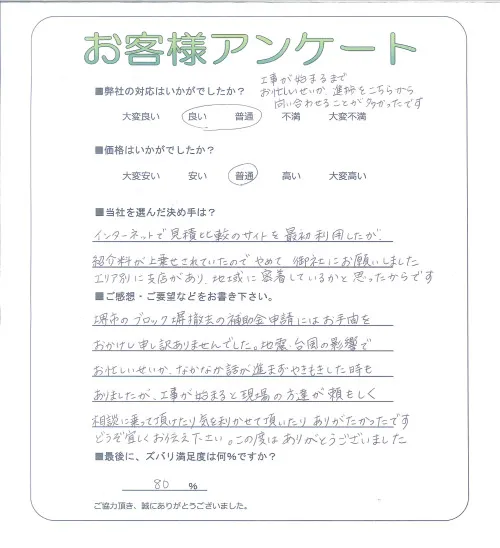 お客様アンケート
■弊社の対応はいかがでしたか？
工事が始まるまで
お忙しいせいか、進捗をこちらから
問い合わせることが多かったです
大変良い 良い 普通 不満 大変不満
■価格はいかがでしたか？
大変安い 安い 普通 高い 大変高い
■当社を選んだ決め手は？
インターネットで見積比較のサイトを最初利用したが、
紹介料が上乗せされていたのでやめて 御社にお願いしました
エリア別に支店があり、地域に密着しているかと思ったからです
■ご感想・ご要望などをお書き下さい。
堺市のブロック塀撤去の補助金申請にはお手間を
おかけし申し訳ありませんでした。地震、台風の影響で
お忙しいせいか、なかなか話が進まずやきもきした時も
ありましたが、工事が始まると現場の方達が頼もしく
相談に乗って頂けたり気を利かせて頂いたり ありがたかったです
どうぞ宜しくお伝え下さい。この度はありがとうございました
■最後に、ズバリ満足度は何%ですか？
80 %
ご協力頂き、誠にありがとうございました。